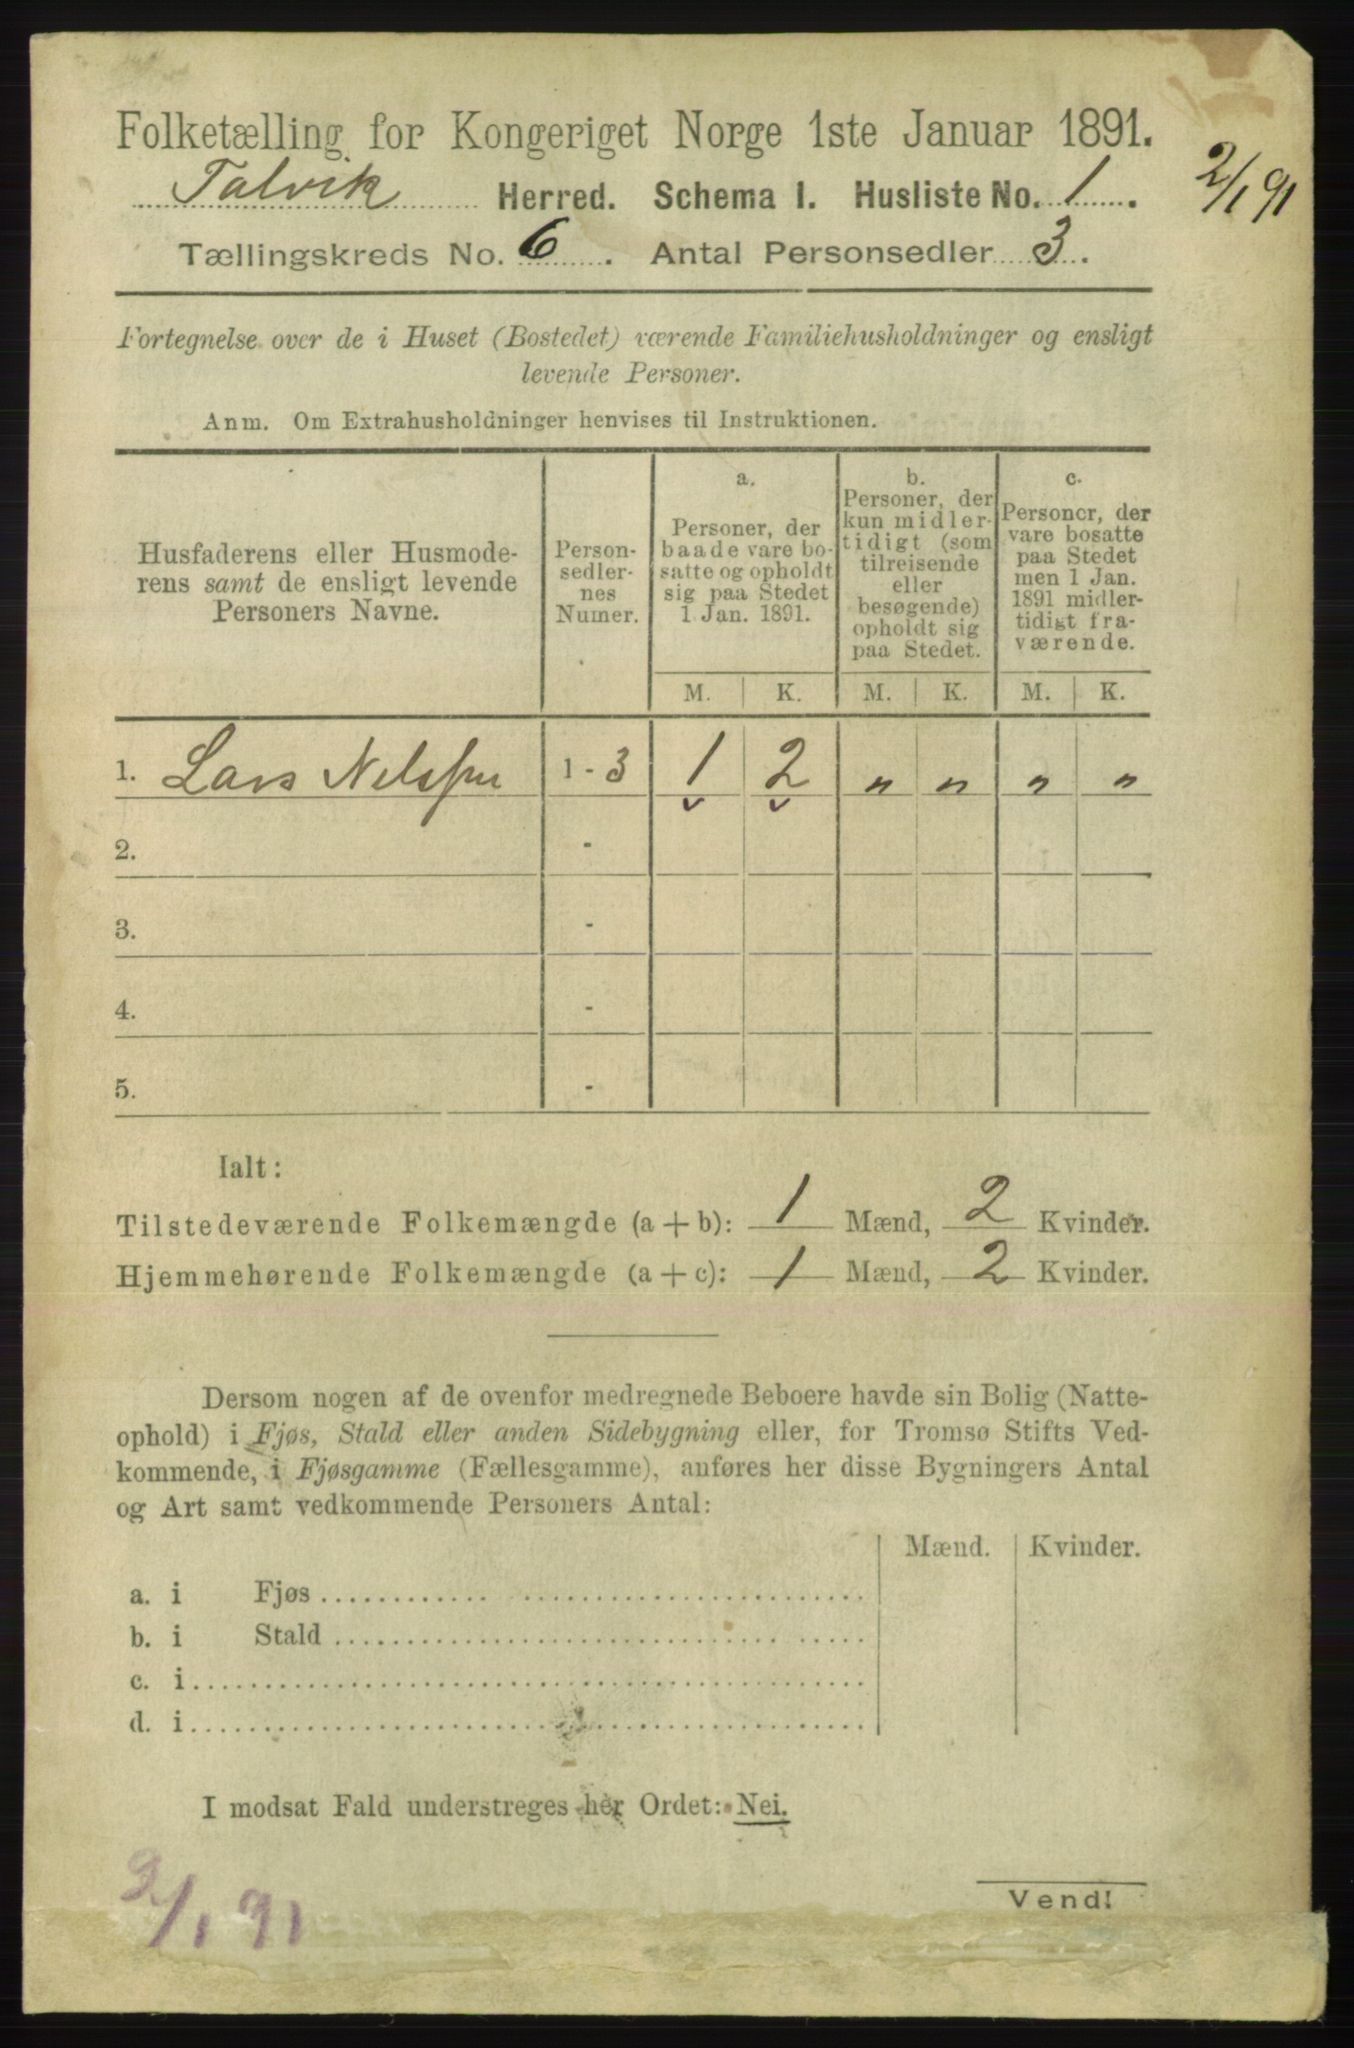 Folketælling for Kongeriget Norge 1ste Januar 1891.
Talvik Herred. Schema I. Husliste No. 1.
2/1 91
Tællingskreds No. 6. Antal Personsedler 3.
Fortegnelse over de i Huset (Bostedet) værende Familiehusholdninger og ensligt
levende Personer.
Anm. Om Extrahusholdninger henvises til Instruktionen.
Husfaderens eller Husmode-
rens samt de ensligt levende
Personers Navne.
Person-
sedler-
nes
Numer.
a.
Personer, der
baade vare bo-
satte og opholdt
sig paa Stedet
1 Jan. 1891.
b.
Personer, der
kun midler-
tidigt (som
tilreisende
eller
besøgende)
opholdt sig
paa Stedet.
c.
Personer, der
vare bosatte
paa Stedet
men 1 Jan.
1891 midler-
tidigt fra-
værende.
M. K. M. K. M. K.
1. Lars Nelssen 1 - 3 1 2 „ „ „ „
2. -
3. -
4. -
5. -
Ialt:
Tilstedeværende Folkemængde (a + b): 1 Mænd, 2 Kvinder.
Hjemmehørende Folkemængde (a + c): 1 Mænd, 2 Kvinder.
Dersom nogen af de ovenfor medregnede Beboere havde sin Bolig (Natte-
ophold) i Fjøs, Stald eller anden Sidebygning eller, for Tromsø Stifts Ved-
kommende, i Fjøsgamme (Fællesgamme), anføres her disse Bygningers Antal
og Art samt vedkommende Personers Antal:
Mænd. Kvinder.
a. i Fjøs
b. i Stald
c. i
d. i
I modsat Fald understreges her Ordet: Nei.
3/1 91
Vend!